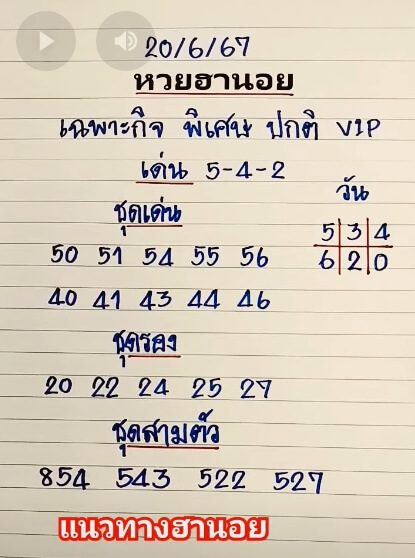 20/6/67
หวยฮานอย
เฉพาะกิจ พิเศษ ปกติ VIP
เด่น 5-4-2
วัน
ชุดเด่น
5 3 4
50 51 54 55 56
6 2 0
40 41 43 44 46
ชุดรอง
20 22 24 25 27
ชุดสามตัว
854 543 522 527
แนวทางฮานอย